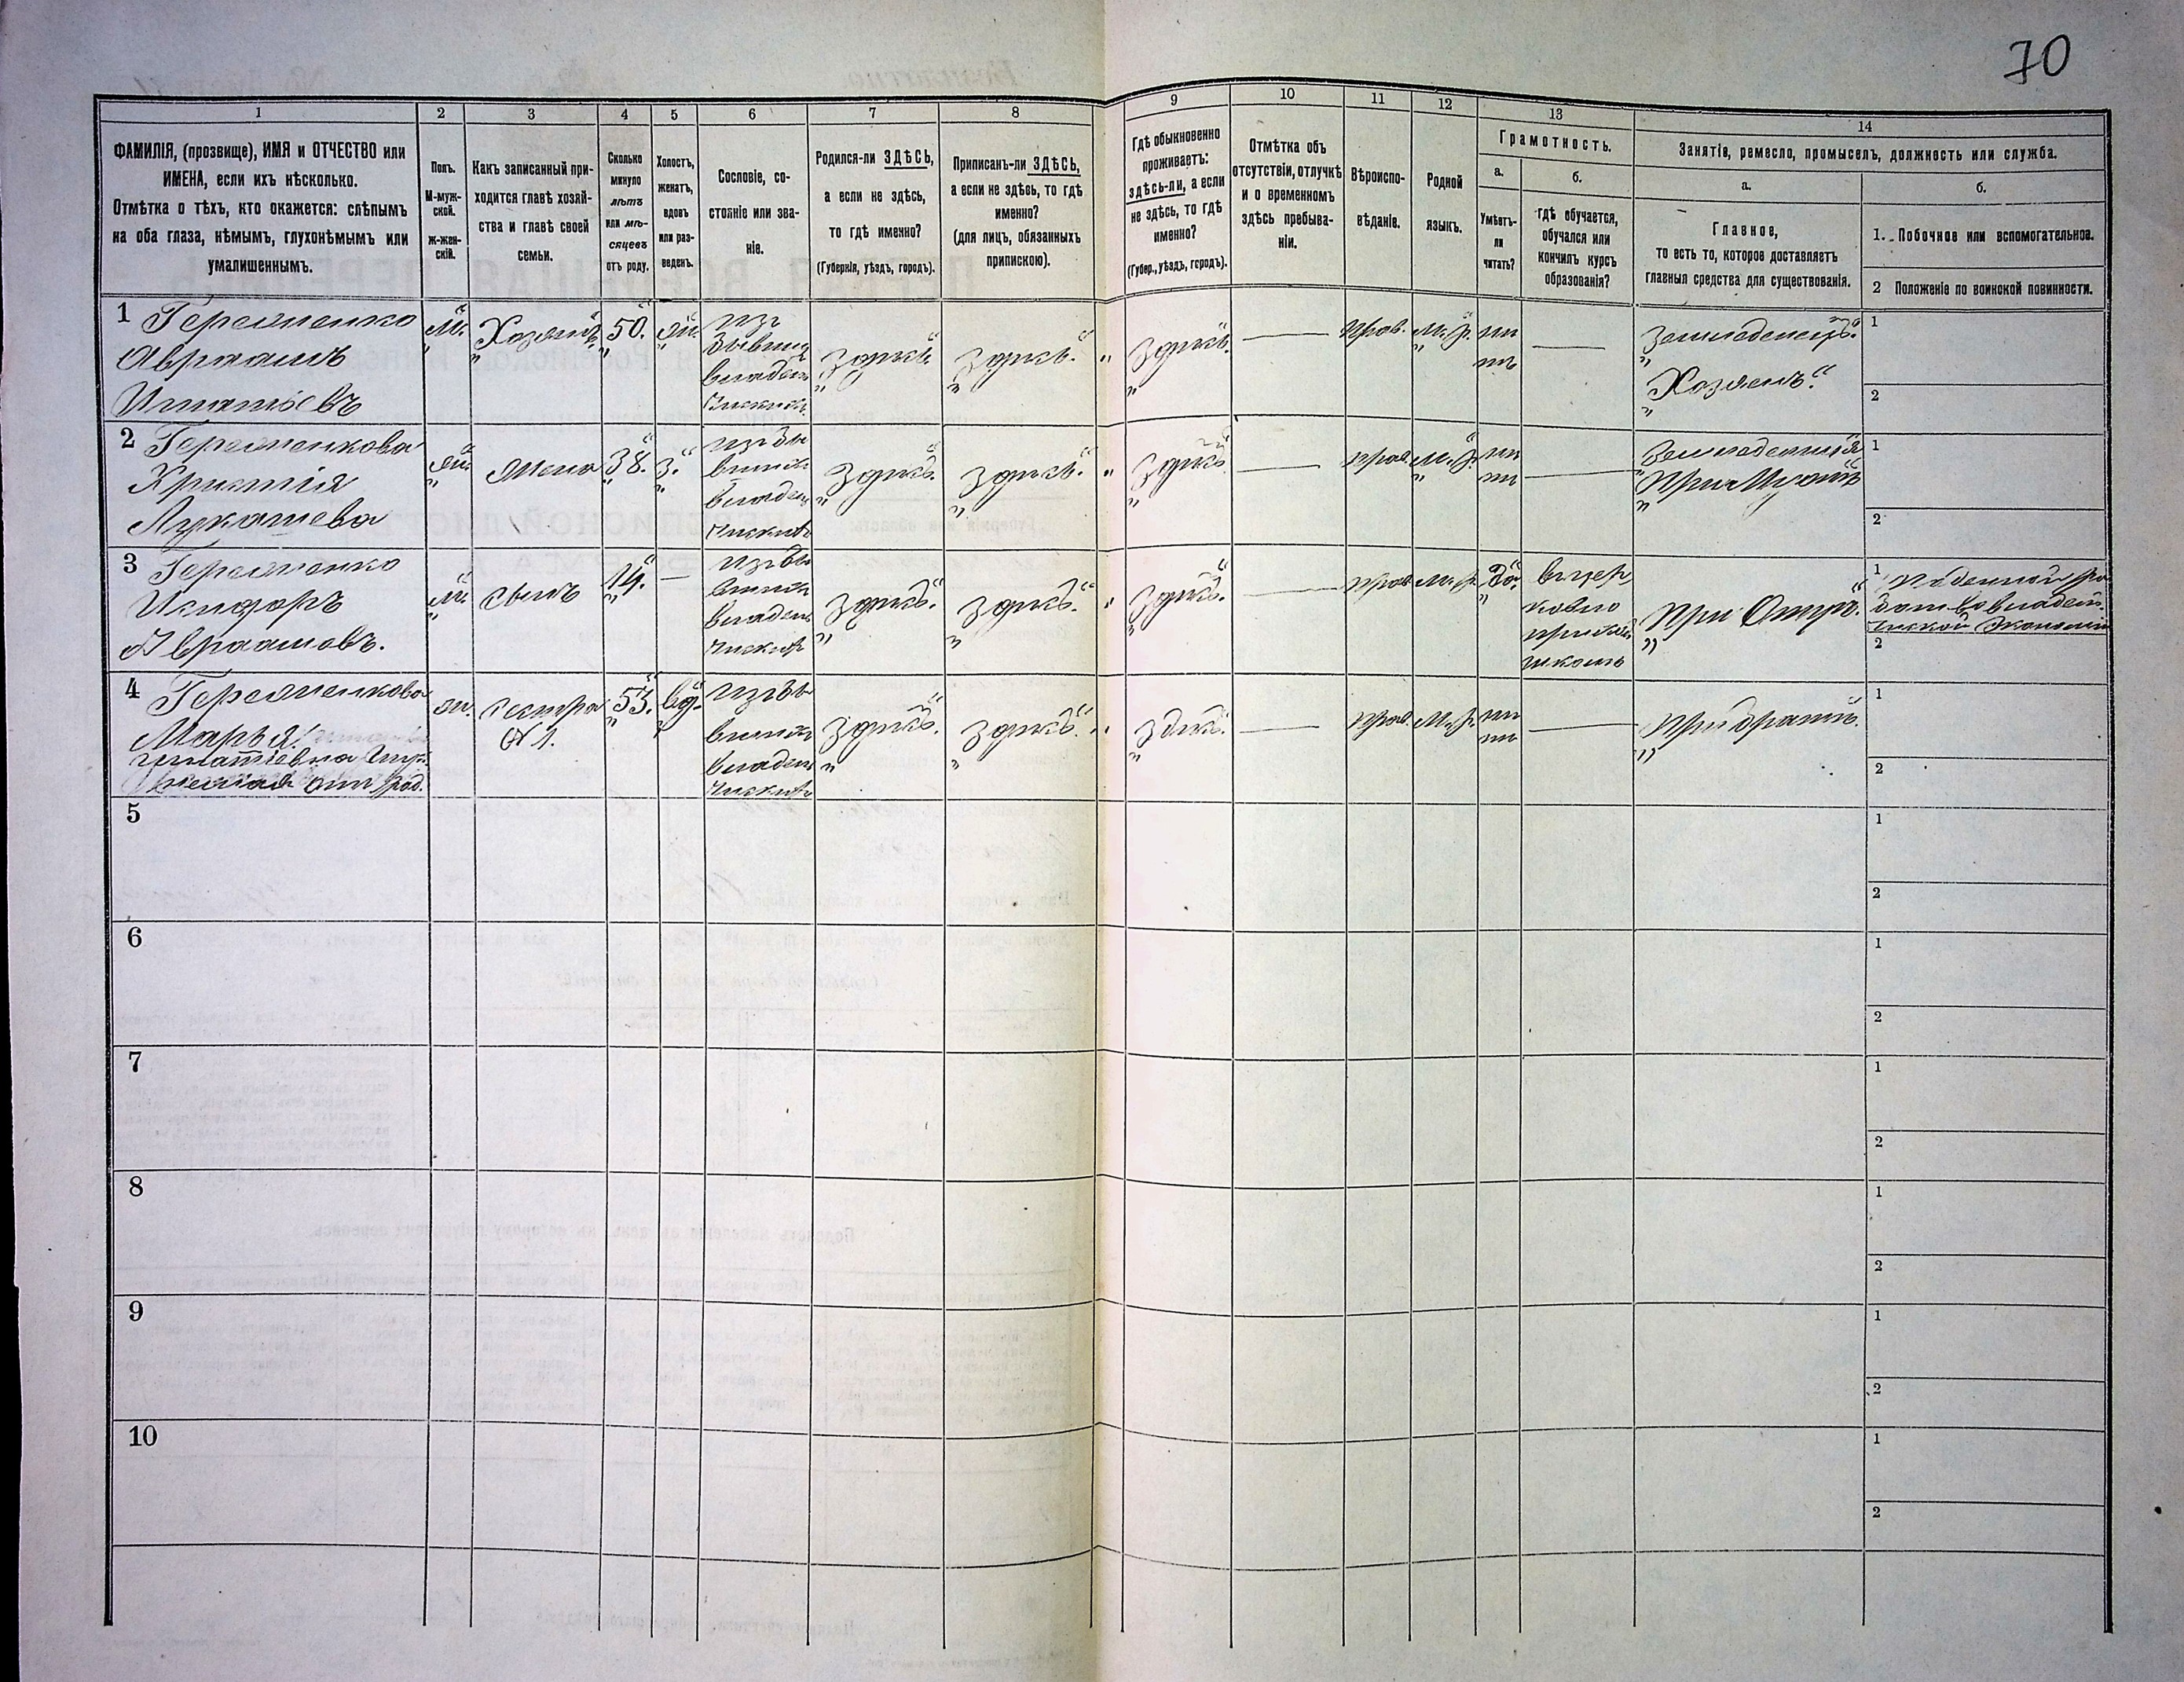 70
1
2
3
4
5
6
7
8
9
10
11
12
13
14
ФАМИЛІЯ, (прозвище), ИМЯ и ОТЧЕСТВО или
ИМЕНА, если ихъ нѣсколько.
Отмѣтка о тѣхъ, кто окажется: слѣпымъ
на оба глаза, нѣмымъ, глухонѣмымъ или
умалишеннымъ.
Полъ.
М-муж-
ской.
Ж-жен-
скій.
Какъ записанный при-
ходится главѣ хозяй-
ства и главѣ своей
семьи.
Сколько
минуло
лѣтъ
или мѣ-
сяцевъ
отъ роду.
Холостъ,
женатъ,
вдовъ
или раз-
веденъ.
Сословіе, со-
стояніе или зва-
ніе.
Родился-ли ЗДѢСЬ,
а если не здѣсь,
то гдѣ именно?
(Губернія, уѣздъ, городъ).
Приписанъ-ли ЗДѢСЬ,
а если не здѣсь, то гдѣ
именно?
(для лицъ, обязанныхъ
припискою).
Гдѣ обыкновенно
проживаетъ:
здѣсь-ли, а если
не здѣсь, то гдѣ
именно?
(Губер., уѣздъ, городъ).
Отмѣтка объ
отсутствіи, отлучкѣ
и о временномъ
здѣсь пребыва-
ніи.
Вѣроиспо-
вѣданіе.
Родной
языкъ.
Грамотность.
а.
Умѣетъ-
ли
читать?
б.
Гдѣ обучается,
обучался или
кончилъ курсъ
образованія?
Занятіе, ремесло, промыселъ, должность или служба.
а.
Главное,
то есть то, которое доставляетъ
главныя средства для существованія.
б.
1. Побочное или вспомогательное.
2 Положеніе по воинской повинности.
1
Авраамъ
Игнатіевъ
м.
Хозяинъ
50.
Изъ
бывш
владель
ческихъ
здѣсь.
здѣсь.
здѣсь.
прав.
м. р.
не
тъ
Земледелецъ.
Хозяенъ.
1
2
2
Христія
Лукашева
Жена
38.
з.
Изъ бы
вших
владель
ческихъ
здѣсь.
здѣсь.
здѣсь.
прав
м. р.
Земледелия
При Мужѣ
1
2
3
Авраамовъ.
м.
сынъ
14.
Изъ бы
вших
владель
ческих
здѣсь.
здѣсь.
здѣсь.
прав
м. р.
да.
в цер
ковно
приход
школѣ
При Отцѣ.
1
2
4
Марья
Игнатіевна
ж.
сестра
№ 1.
53.
вд.
Изъ бы
вших
владель
ческих
здѣсь.
здѣсь.
здѣсь.
прав.
м. р.
При братѣ.
1
2
5
1
2
6
1
2
7
1
2
8
1
2
9
1
2
10
1
2